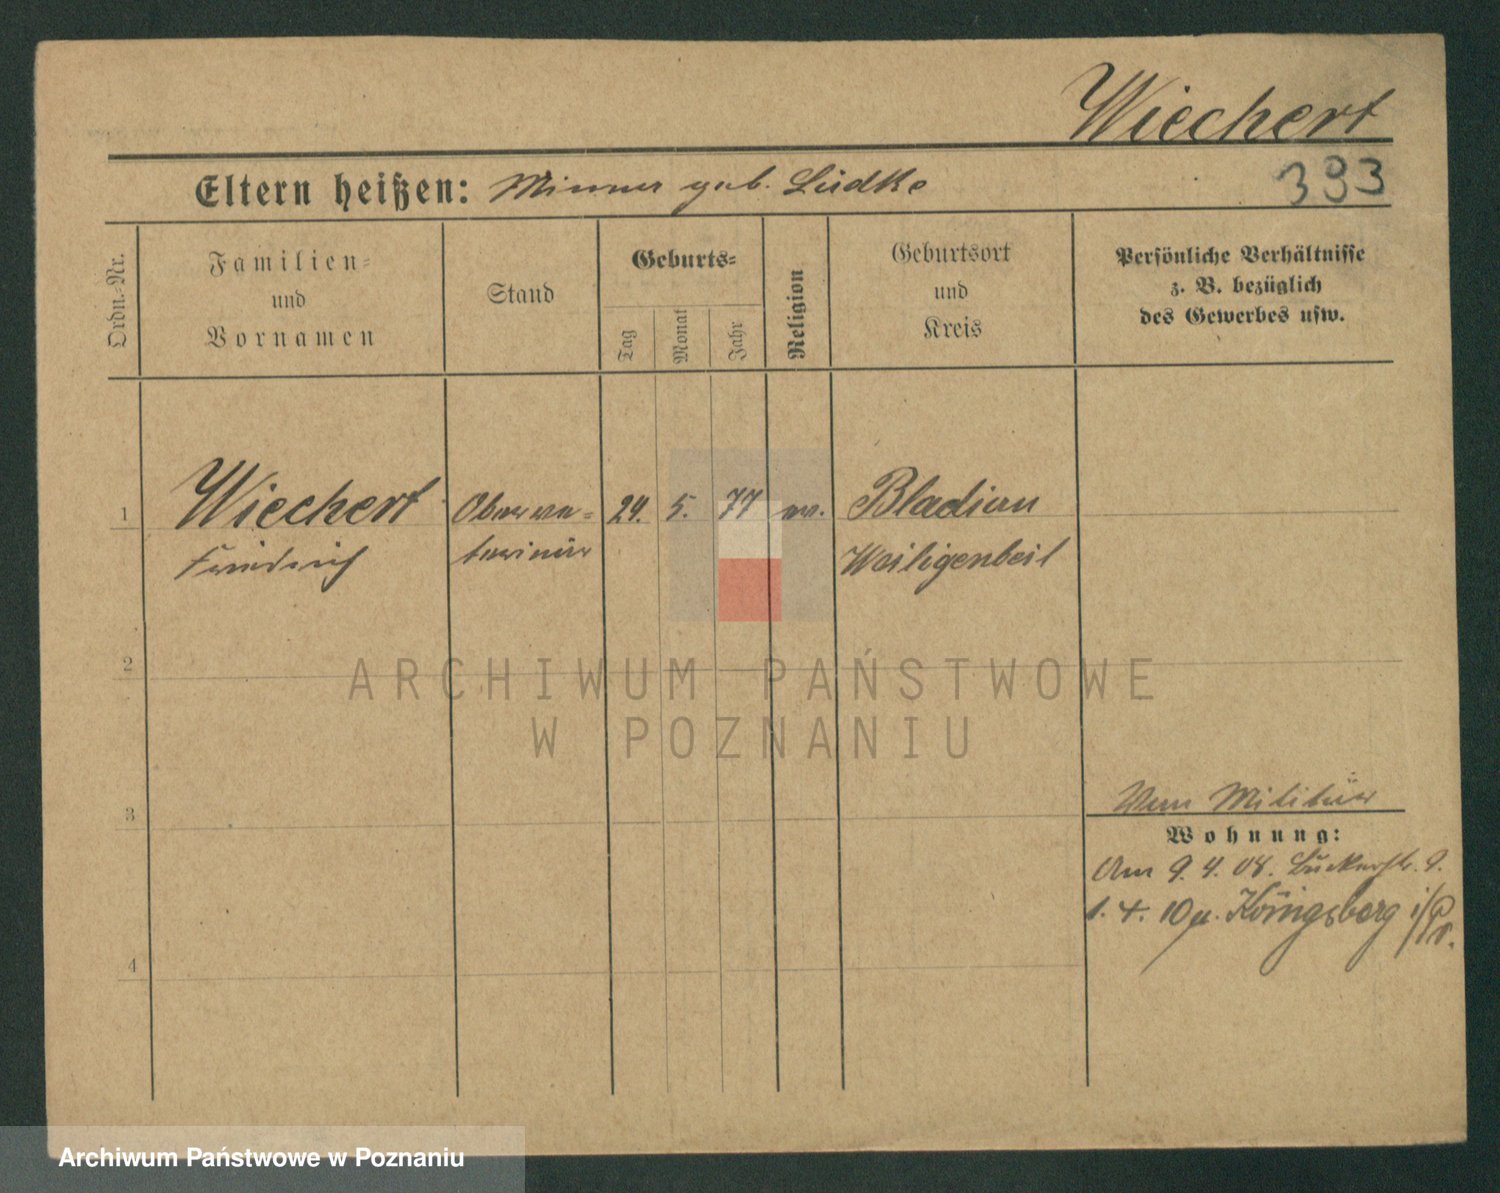 Wiechert
393
Eltern heißen: Minna geb. Lüdke
Ordn.-Nr.
Familien-
und
Vornamen
Stand
Geburts-
Tag
Monat
Jahr
Religion
Geburtsort
und
Kreis
Persönliche Verhältnisse
z. B. bezüglich
des Gewerbes usw.
1 Wiechert Oberve- 24. 5. 77 ev. Bladiau
Friedrich terinär Heiligenbeil
2
ARCHIWUM PAŃSTWOWE
W POZNANIU
3
Vom Militär
Wohnung:
Am 9. 4. 08.
1. 4. 10 Königsberg i/Pr.
4
Archiwum Państwowe w Poznaniu